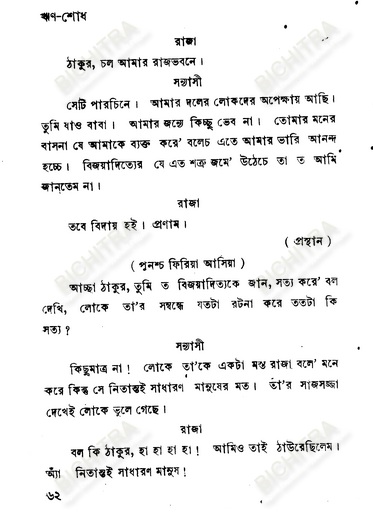 ঋণ-শোধ
রাজা
ঠাকুর, চল আমার রাজভবনে।
সন্ন্যাসী
সেটি পারচিনে। আমার দলের লোকদের অপেক্ষায় আছি।
তুমি যাও বাবা। আমার জন্যে কিচ্ছু ভেব না। তোমার মনের
বাসনা যে আমাকে ব্যক্ত করে' বলেচ এতে আমার ভারি আনন্দ
হচ্চে। বিজয়াদিত্যের যে এত শত্রু জমে' উঠেচে তা ত আমি
জান্‌তেম না।
রাজা
তবে বিদায় হই। প্রণাম।
( প্রস্থান )
( পুনশ্চ ফিরিয়া আসিয়া )
আচ্ছা ঠাকুর, তুমি ত বিজয়াদিত্যকে জান, সত্য করে' বল
দেখি, লোকে তা'র সম্বন্ধে যতটা রটনা করে ততটা কি
সত্য ?
সন্ন্যাসী
কিছুমাত্র না! লোকে তা'কে একটা মস্ত রাজা বলে' মনে
করে কিন্তু সে নিতান্তই সাধারণ মানুষের মত। তা'র সাজসজ্জা
দেখেই লোকে ভুলে গেছে।
রাজা
বল কি ঠাকুর, হা হা হা হা! আমিও তাই ঠাউরেছিলেম।
অ্যাঁ নিতান্তই সাধারণ মানুষ!
৬২
BICHITRA
BICHITRA
BICHITRA
BICHITRA
BICHITRA
BICHITRA